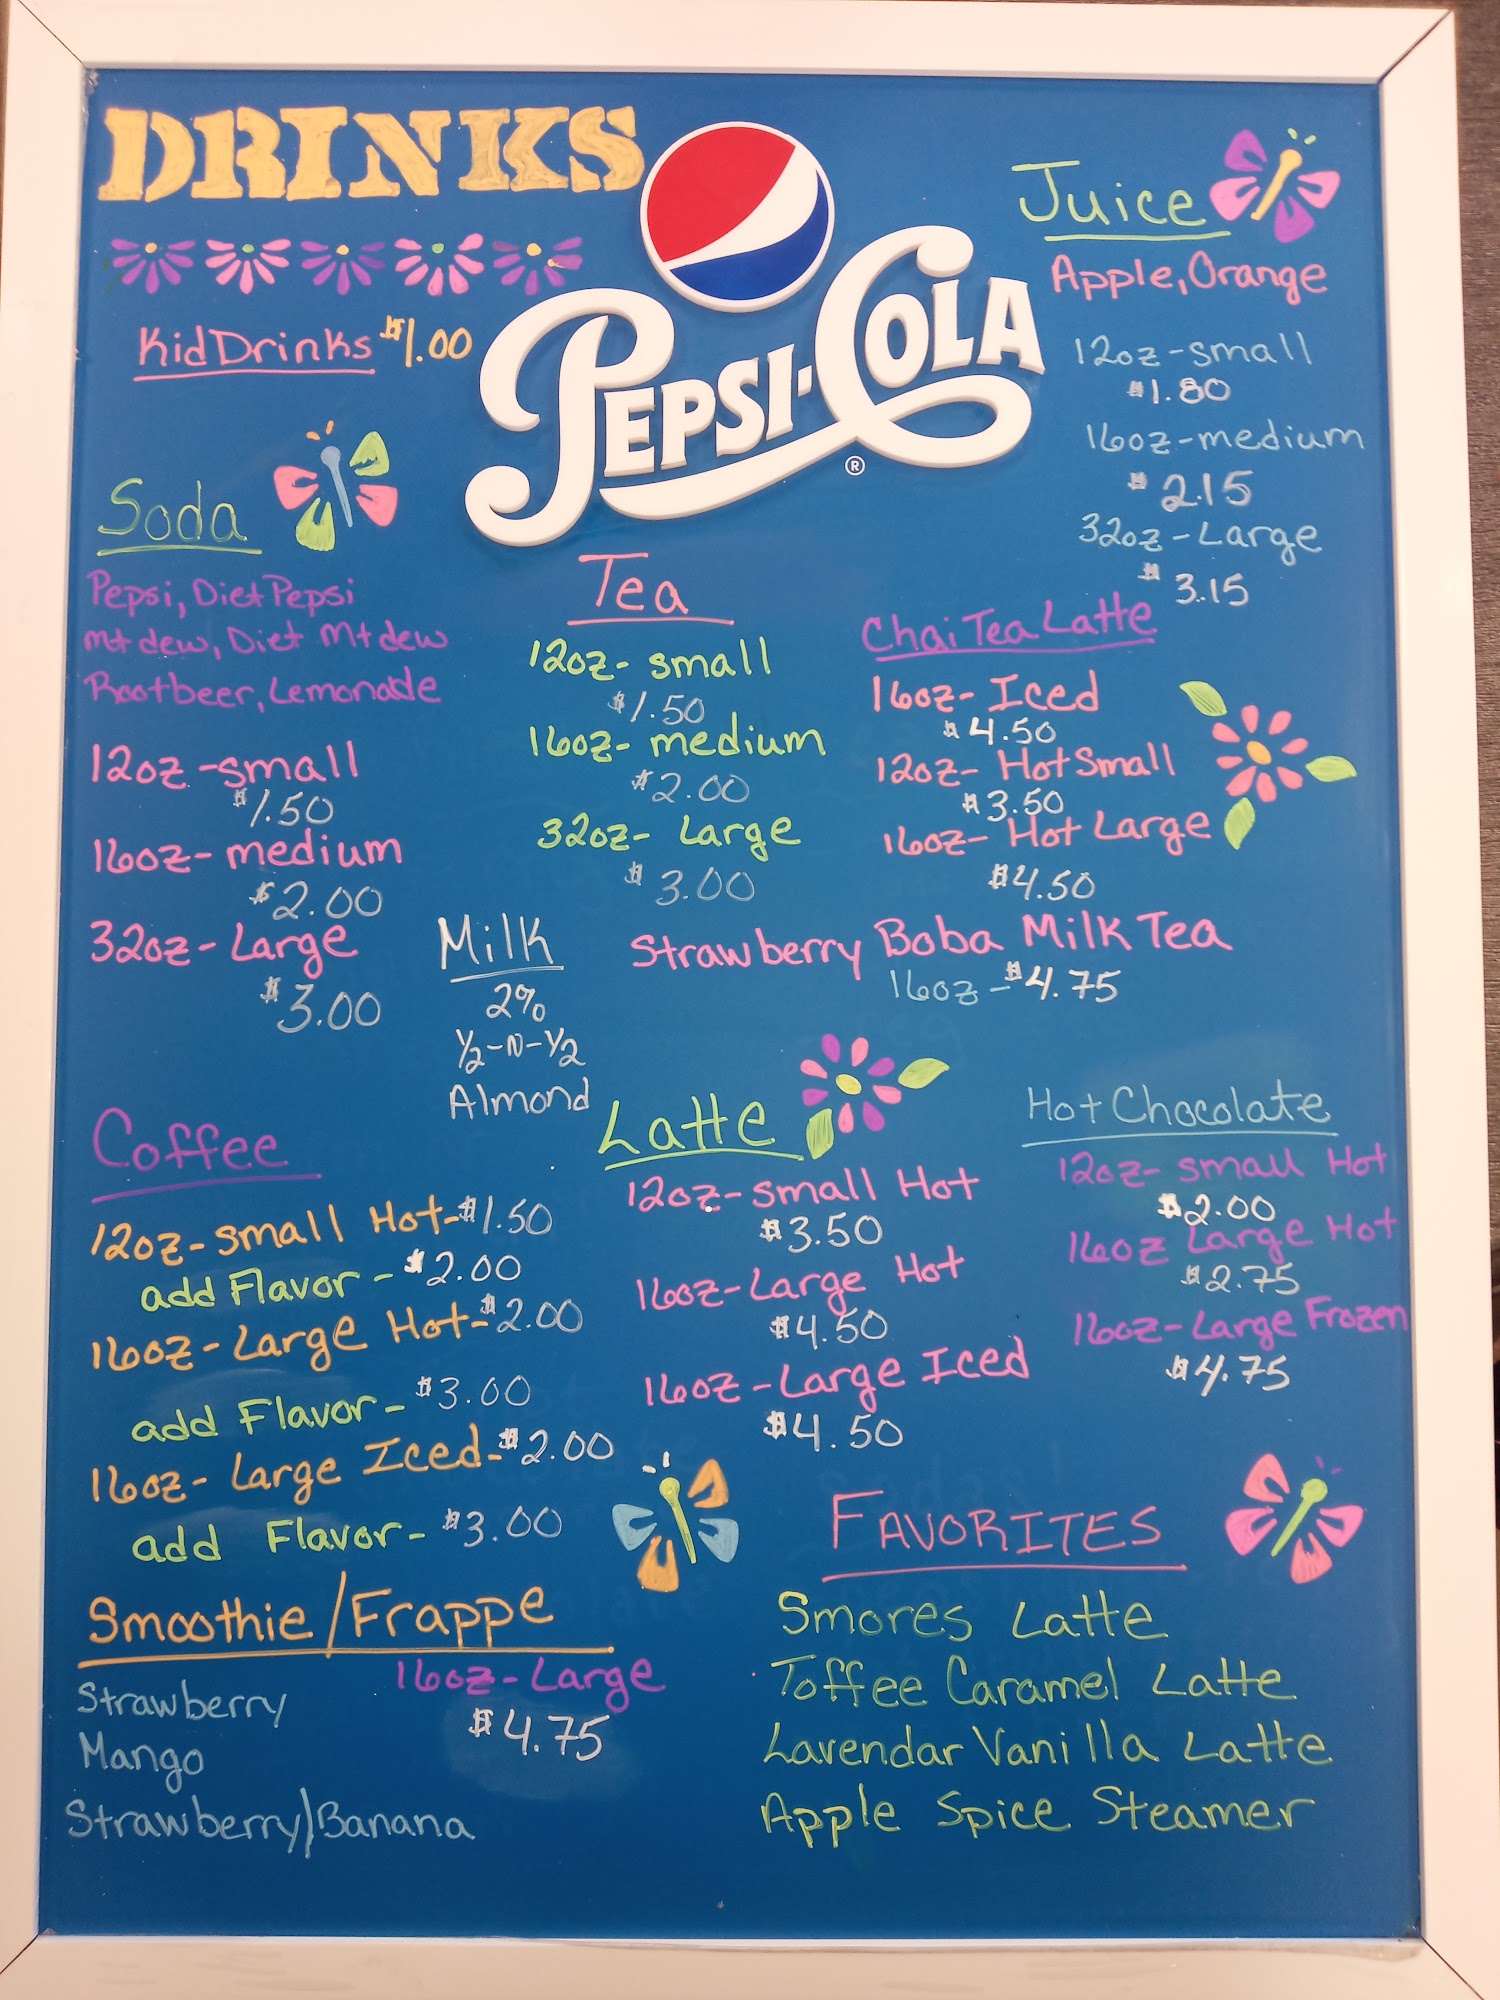 DRINKS
Kid Drinks $1.00
PEPSI-COLA
®
Juice
Apple, Orange
12oz-small
$1.80
16oz-medium
$2.15
32oz-Large
$3.15
Soda
Pepsi, Diet Pepsi
mt dew, Diet Mt dew
Rootbeer, Lemonade
12oz-small
$1.50
16oz-medium
$2.00
32oz-Large
$3.00
Tea
12oz-small
$1.50
16oz-medium
$2.00
32oz-Large
$3.00
Chai Tea Latte
16oz-Iced
$4.50
12oz-Hot Small
$3.50
16oz-Hot Large
$4.50
Milk
2%
1/2-N-1/2
Almond
Strawberry Boba Milk Tea
16oz-$4.75
Coffee
12oz-small Hot-$1.50
add Flavor-$2.00
16oz-Large Hot-$2.00
add Flavor-$3.00
16oz-Large Iced-$2.00
add Flavor-$3.00
Latte
12oz-small Hot
$3.50
16oz-Large Hot
$4.50
16oz-Large Iced
$4.50
Hot Chocolate
12oz-small Hot
$2.00
16oz Large Hot
$2.75
16oz-Large Frozen
$4.75
Smoothie/Frappe
16oz-Large
$4.75
Strawberry
Mango
Strawberry/Banana
FAVORITES
Smores Latte
Toffee Caramel Latte
Lavendar Vanilla Latte
Apple Spice Steamer